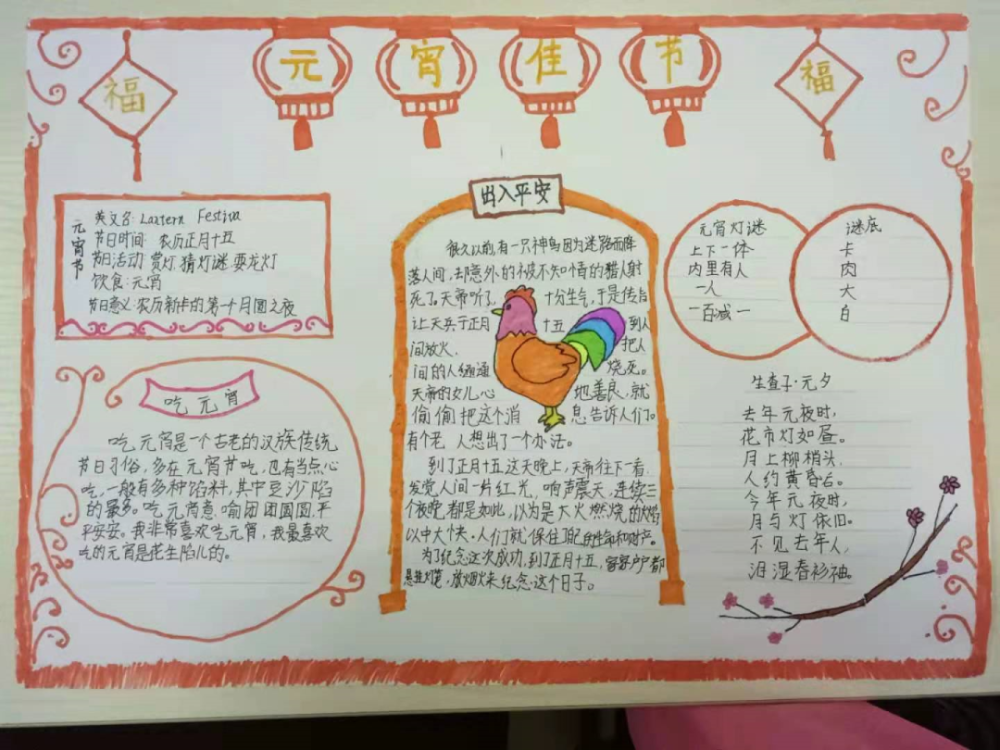 元宵佳节
福
福
元宵节
英文名: Lantern Festiva
节日时间: 农历正月十五
节日活动: 赏灯.猜灯谜.耍龙灯
饮食:元宵
节日意义:农历新年的第一个月圆之夜
吃元宵
吃元宵是一个古老的汉族传统
节日习俗,多在元宵节吃,也有当点心
吃,一般有多种馅料,其中豆沙馅
的最多。吃元宵意喻团团圆圆,平
平安安。我非常喜欢吃元宵,我最喜欢
吃的元宵是花生馅儿的。
出入平安
很久以前,有一只神鸟因为迷路而降
落人间,却意外的被不知情的猎人射
死了,天帝听了 十分生气,于是传旨
让天兵于正月 十五 到人
间放火, 把人
间的人通通 烧死。
天帝的女儿心 地善良,就
偷偷把这个消 息告诉人们。
有个老 人想出了一个办法。
到了正月十五这天晚上,天帝往下一看,
发觉人间一片红光,响声震天,连续三
个夜晚都是如此,以为是大火燃烧的火焰
以中大快。人们就保住了自己的生命和财产。
为了纪念这次成功,到了正月十五,家家户户都
悬挂灯笼,放烟火来纪念这个日子。
元宵灯谜
上下一体
内里有人
一人
一百减一
谜底
卡
肉
大
白
生查子·元夕
去年元夜时,
花市灯如昼。
月上柳梢头,
人约黄昏后。
今年元夜时,
月与灯依旧。
不见去年人,
泪湿春衫袖。